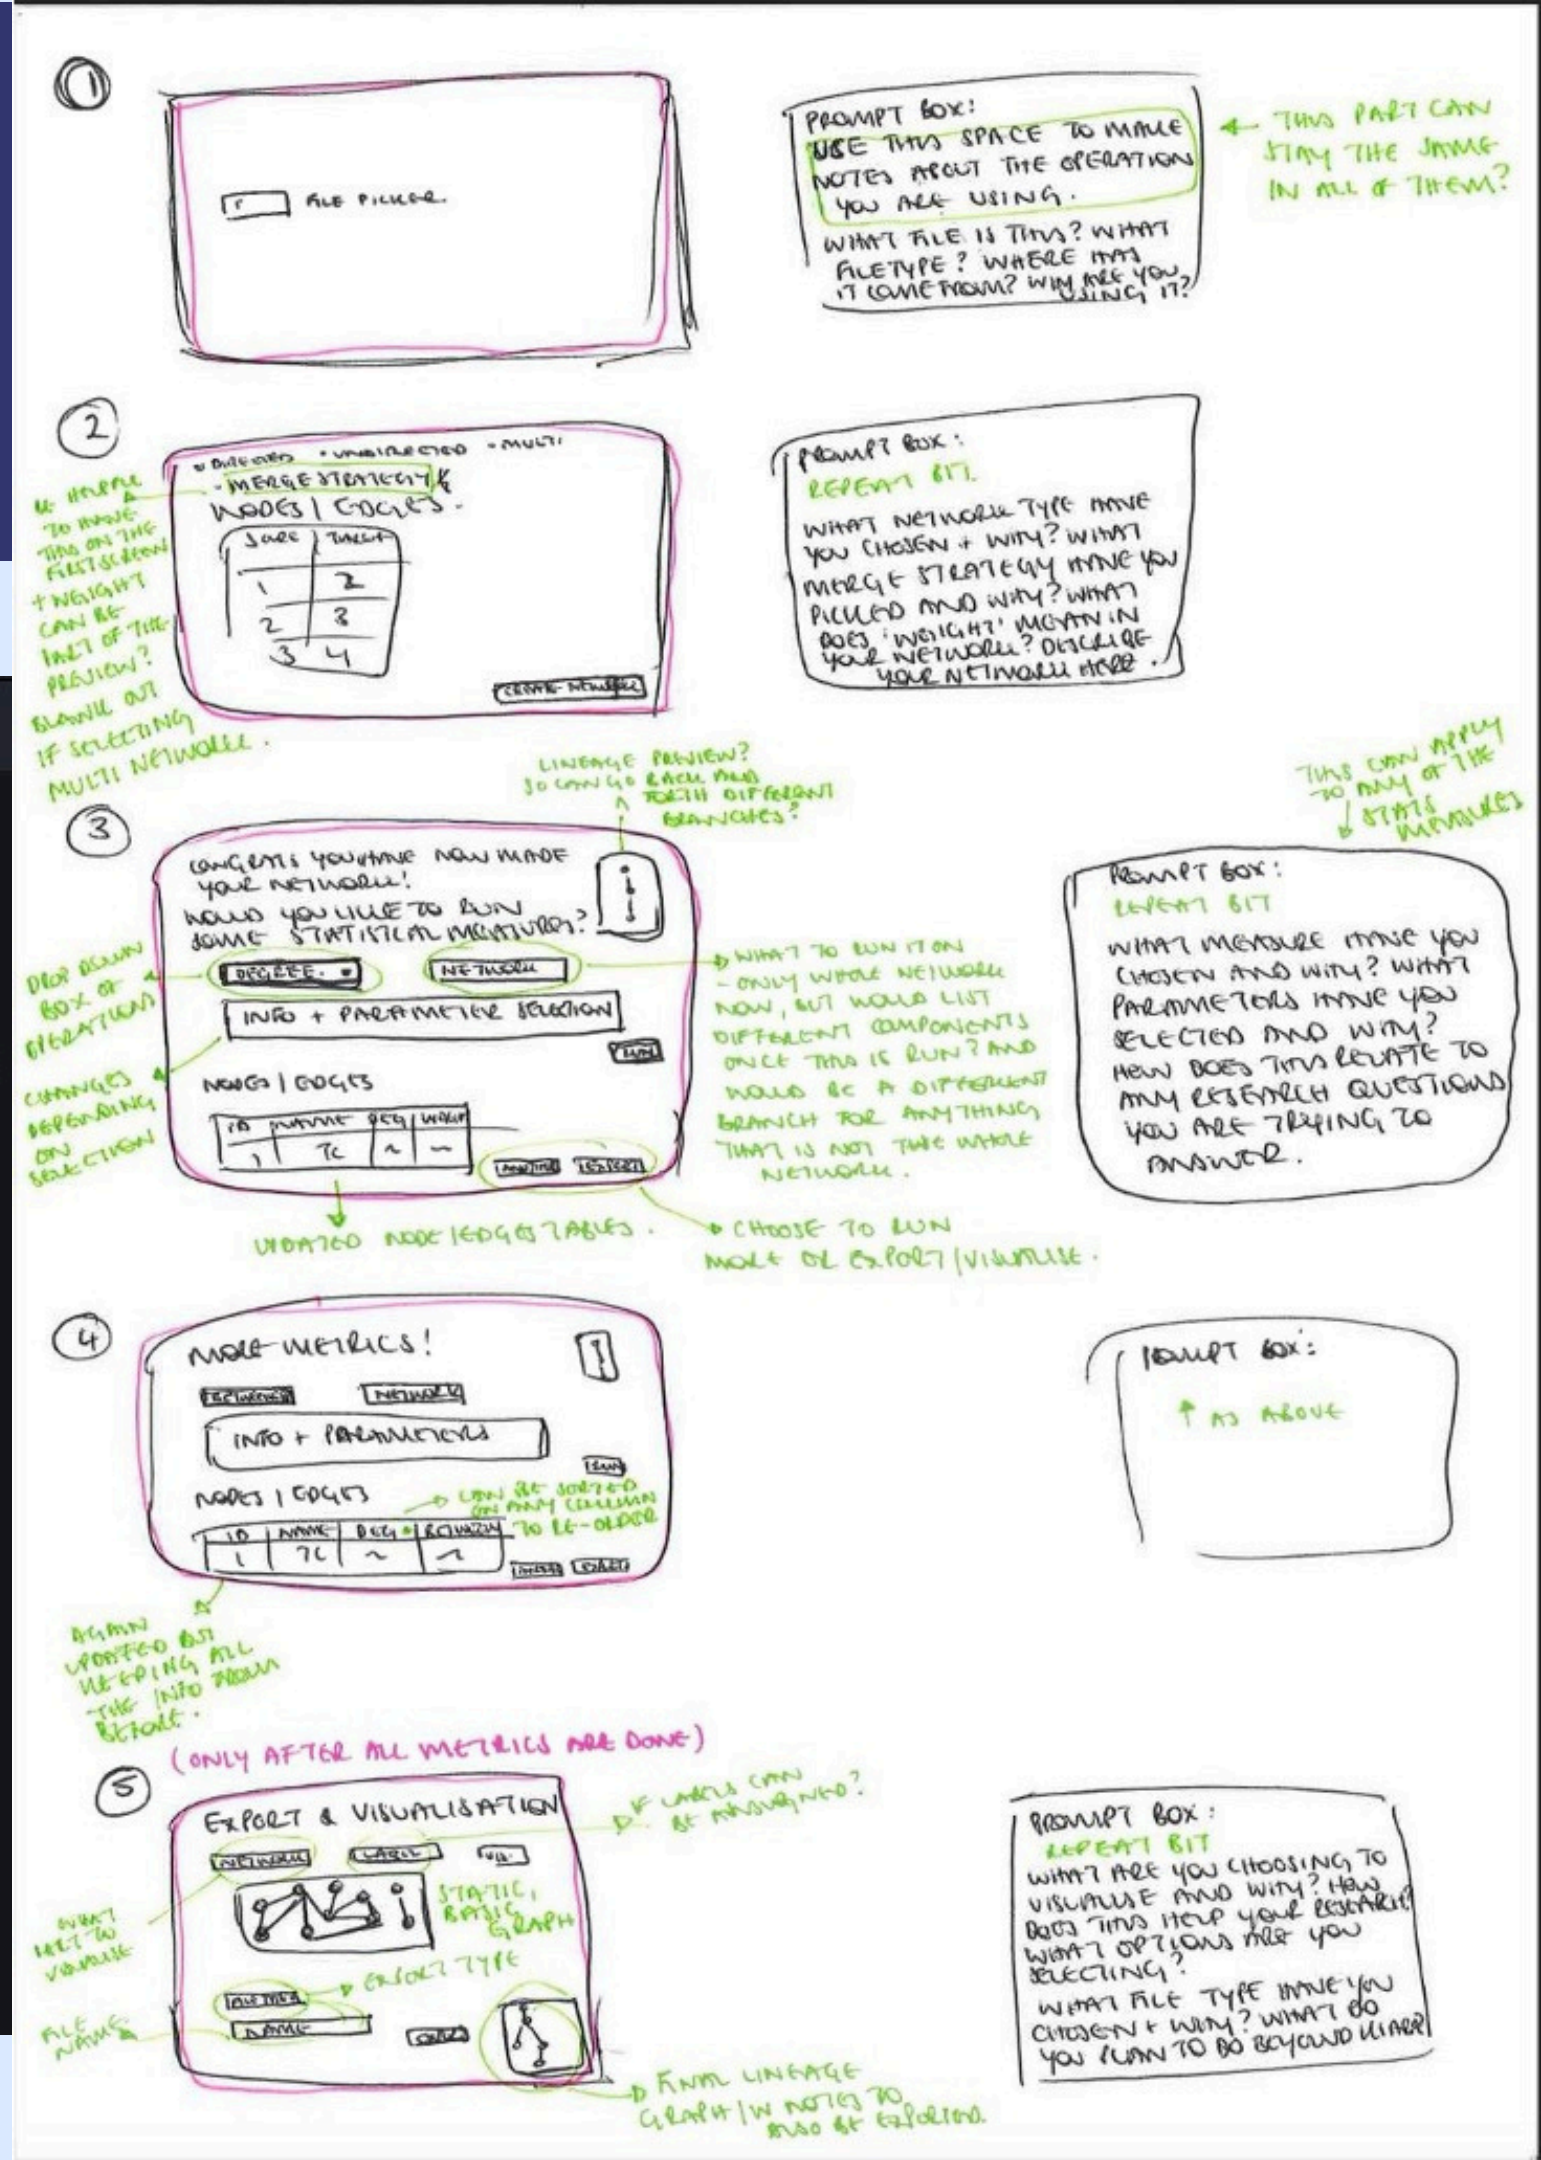 1
FILE PICKER.
PROMPT BOX:
USE THIS SPACE TO MAKE
NOTES ABOUT THE OPERATION
YOU ARE USING.
WHAT FILE IS THIS? WHAT
FILETYPE? WHERE HAS
IT COME FROM? WHY ARE YOU
USING IT?
THIS PART CAN
STAY THE SAME
IN ALL OF THEM?
2
• DIRECTED • UNDIRECTED • MULTI
- MERGE STRATEGY
NODES | EDGES.
TARGET
1 2
2 3
3 4
CREATE NETWORK
BE HELPFUL
TO HAVE
THIS ON THE
FIRST SCREEN
+ WEIGHT
CAN BE
PART OF THE
PREVIEW?
BLANK OUT
IF SELECTING
MULTI NETWORK.
PROMPT BOX:
REPEAT BIT.
WHAT NETWORK TYPE HAVE
YOU CHOSEN + WHY? WHAT
MERGE STRATEGY HAVE YOU
PICKED AND WHY? WHAT
DOES 'WEIGHT' MEAN IN
YOUR NETWORK? DESCRIBE
YOUR NETWORK HERE.
3
LINEAGE PREVIEW?
SO CAN GO BACK AND
FORTH DIFFERENT
BRANCHES?
CONGRATS YOU HAVE NOW MADE
YOUR NETWORK!
WOULD YOU LIKE TO RUN
SOME STATISTICAL MEASURES?
DEGREE. NETWORK
INFO + PARAMETER SELECTION
RUN
NODES | EDGES
ID NAME DEG WEIGHT
1
EXPORT
DROP DOWN
BOX OF
OPERATIONS
CHANGES
DEPENDING
ON
SELECTION
WHAT TO RUN IT ON
- ONLY WHOLE NETWORK
NOW, BUT WOULD LIST
DIFFERENT COMPONENTS
ONCE THIS IS RUN? AND
WOULD BE A DIFFERENT
BRANCH FOR ANYTHING
THAT IS NOT THE WHOLE
NETWORK.
UPDATED NODE/EDGES TABLES.
CHOOSE TO RUN
MORE OR EXPORT/VISUALISE.
THIS CAN APPLY
TO ANY OF THE
STATS
MEASURES
PROMPT BOX:
REPEAT BIT
WHAT MEASURE HAVE YOU
CHOSEN AND WHY? WHAT
PARAMETERS HAVE YOU
SELECTED AND WHY?
HOW DOES THIS RELATE TO
ANY RESEARCH QUESTIONS
YOU ARE TRYING TO
ANSWER.
4
MORE METRICS!
NETWORK
INFO + PARAMETERS
RUN
NODES | EDGES
CAN BE SORTED
ON ANY COLUMN
TO RE-ORDER
ID NAME DEG
1
EXPORT
AGAIN
UPDATED BUT
KEEPING ALL
THE INFO FROM
BEFORE.
PROMPT BOX:
AS ABOVE
(ONLY AFTER ALL METRICS ARE DONE)
5
EXPORT & VISUALISATION
NETWORK LABEL VIS.
IF LABELS CAN
BE ASSIGNED?
STATIC,
BASIC
GRAPH
WHAT
TO
VISUALISE
EXPORT TYPE
FILETYPE
NAME
FILE
NAME
FINAL LINEAGE
GRAPH/W NOTES TO
ALSO BE EXPORTED.
PROMPT BOX:
REPEAT BIT
WHAT ARE YOU CHOOSING TO
VISUALISE AND WHY? HOW
DOES THIS HELP YOUR RESEARCH?
WHAT OPTIONS ARE YOU
SELECTING?
WHAT FILE TYPE HAVE YOU
CHOSEN + WHY? WHAT DO
YOU PLAN TO DO BEYOND